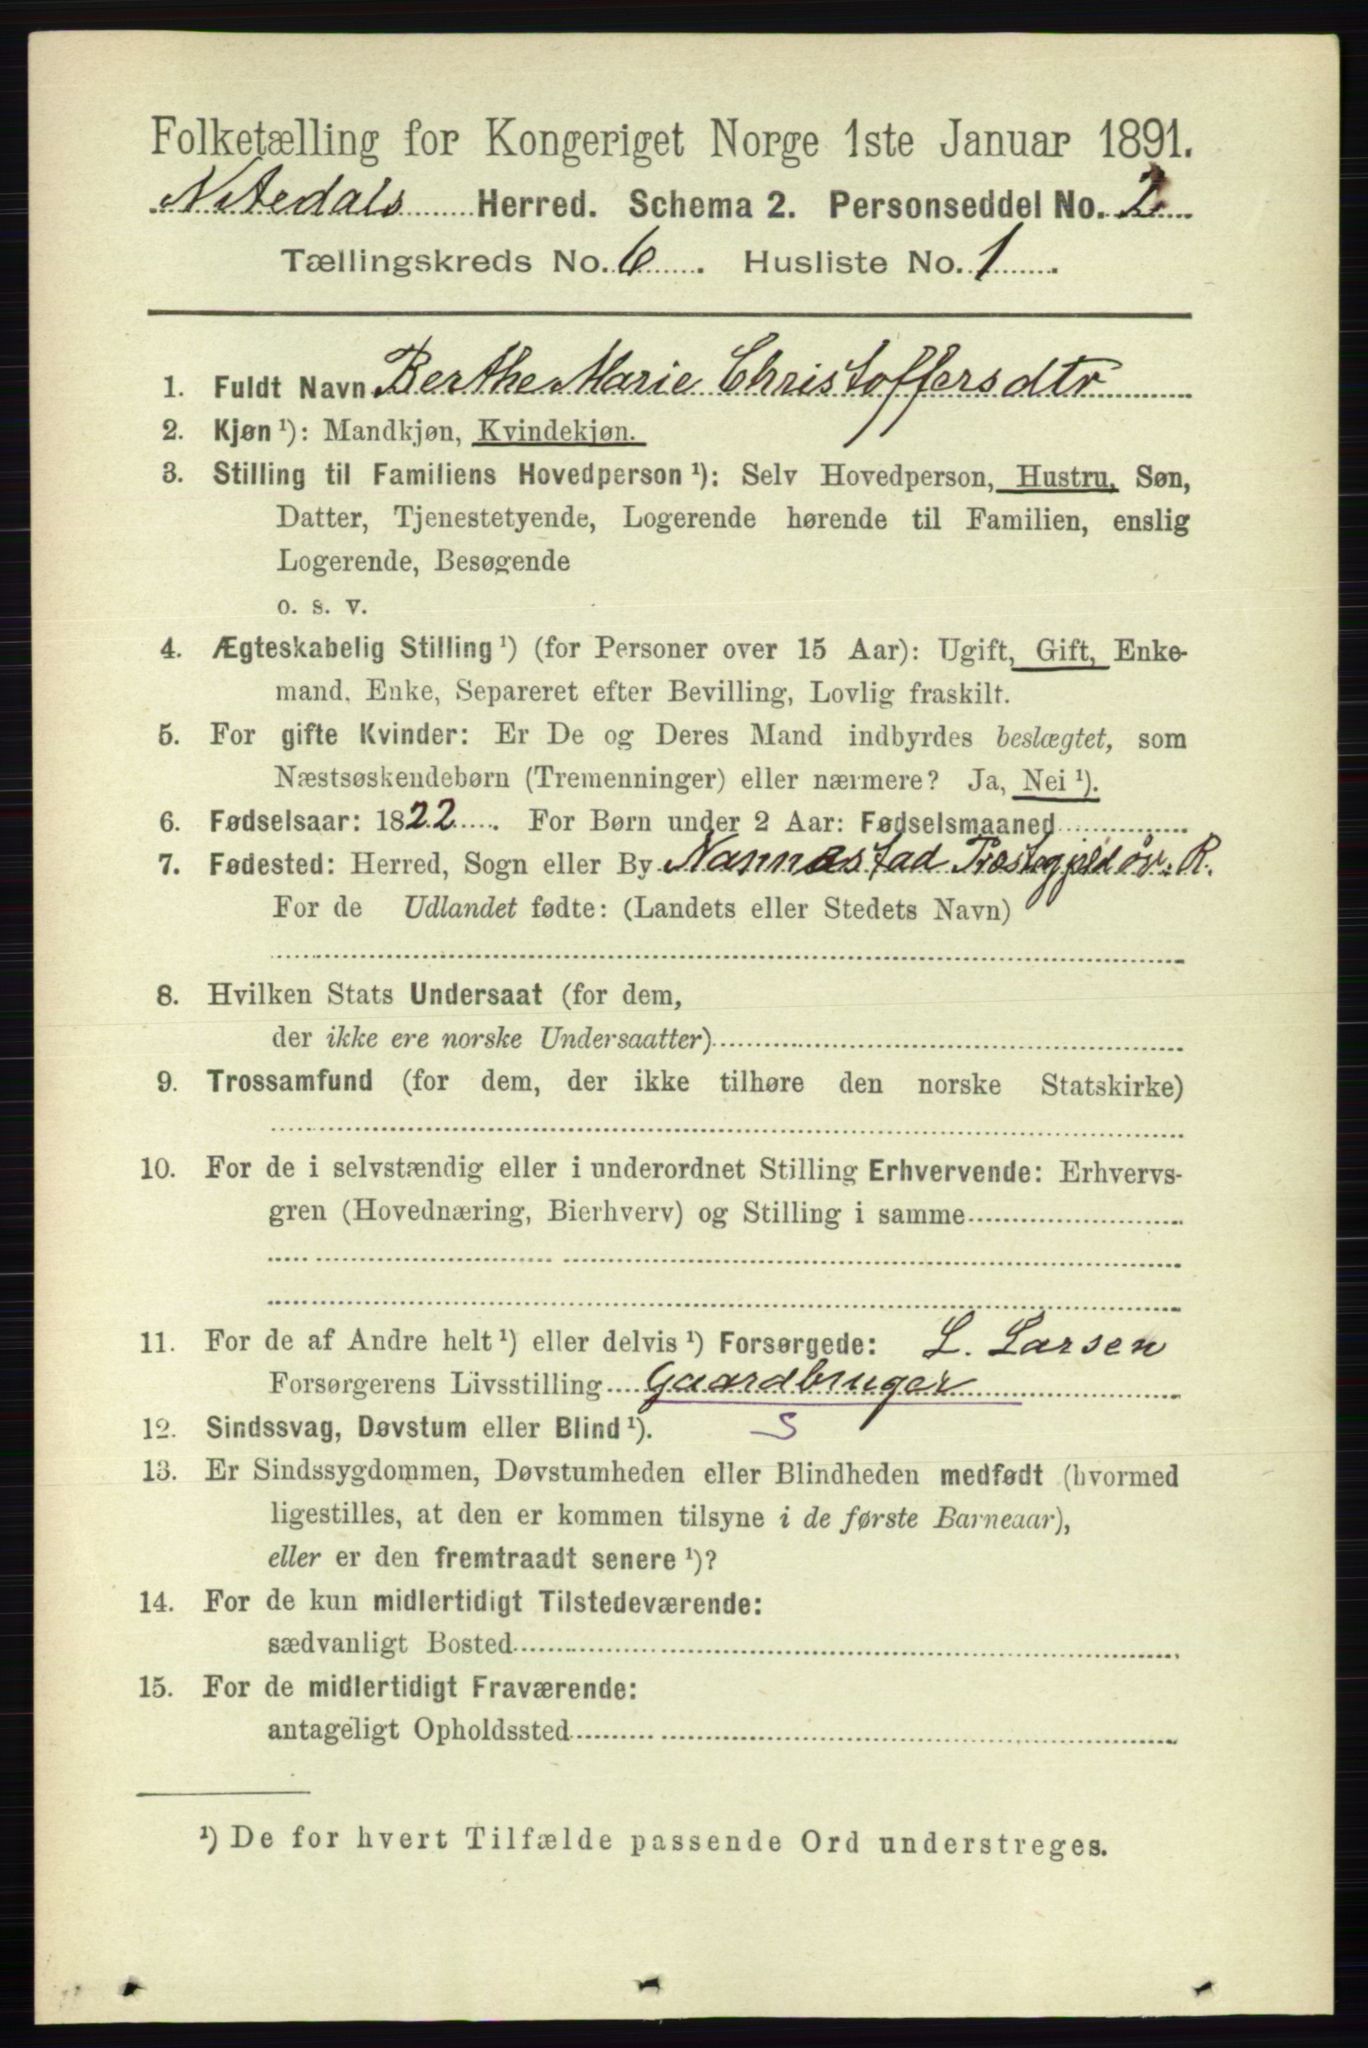 Folketælling for Kongeriget Norge 1ste Januar 1891.
Nitedals Herred. Schema 2. Personseddel No. 2
Tællingskreds No. 6. Husliste No. 1.
1. Fuldt Navn Berthe Marie Christoffersdtr
2. Kjøn ¹): Mandkjøn, Kvindekjøn.
3. Stilling til Familiens Hovedperson ¹): Selv Hovedperson, Hustru, Søn,
Datter, Tjenestetyende, Logerende hørende til Familien, enslig
Logerende, Besøgende
o. s. v.
4. Ægteskabelig Stilling ¹) (for Personer over 15 Aar): Ugift, Gift, Enke-
mand, Enke, Separeret efter Bevilling, Lovlig fraskilt.
5. For gifte Kvinder: Er De og Deres Mand indbyrdes beslægtet, som
Næstsøskendebørn (Tremenninger) eller nærmere? Ja, Nei ¹).
6. Fødselsaar: 1822. For Børn under 2 Aar: Fødselsmaaned
7. Fødested: Herred, Sogn eller By Nannestad Præstegjeld øv. R.
For de Udlandet fødte: (Landets eller Stedets Navn)
8. Hvilken Stats Undersaat (for dem,
der ikke ere norske Undersaatter)
9. Trossamfund (for dem, der ikke tilhøre den norske Statskirke)
10. For de i selvstændig eller i underordnet Stilling Erhvervende: Erhvervs-
gren (Hovednæring, Bierhverv) og Stilling i samme
11. For de af Andre helt ¹) eller delvis ¹) Forsørgede: L. Larsen
Forsørgerens Livsstilling Gaardbruger
12. Sindssvag, Døvstum eller Blind ¹). S
13. Er Sindssygdommen, Døvstumheden eller Blindheden medfødt (hvormed
ligestilles, at den er kommen tilsyne i de første Barneaar),
eller er den fremtraadt senere ¹)?
14. For de kun midlertidigt Tilstedeværende:
sædvanligt Bosted
15. For de midlertidigt Fraværende:
antageligt Opholdssted
¹) De for hvert Tilfælde passende Ord understreges.